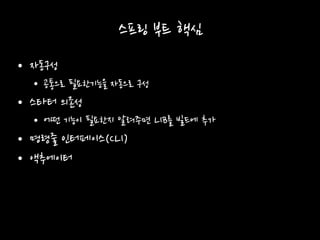 스프링 부트 핵심
• 자동구성
• 공통으로 필요한기능을 자동으로 구성
• 스타터 의존성
• 어떤 기능이 필요한지 알려주면 LIB를 빌드에 추가
• 명령줄 인터페이스(CLI)
• 액추에이터